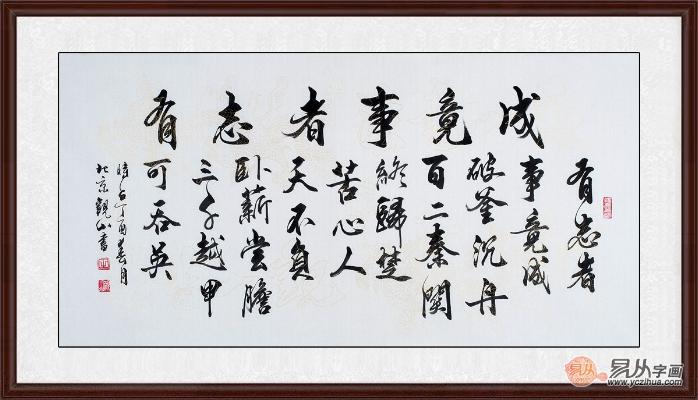 有志者事竟成
有志者
事竟成
破釜沉舟
百二秦關
終歸楚
苦心人
天不負
卧薪尝膽
三千越甲
可吞吴
時在丁酉春月
北京觀山書
易从字画
www.yczihua.com